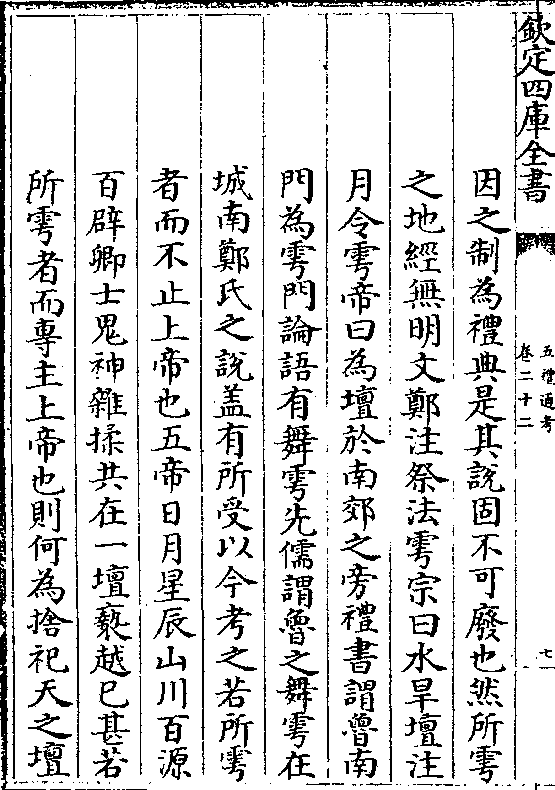 欽定四庫全書
五禮通考
卷二十二
七
因之制為禮典是其説固不可廢也然所雩
之地經無明文鄭注祭法雩宗曰水旱壇注
月令雩帝曰為壇於南郊之旁禮書謂魯南
門為雩門論語有舞雩先儒謂魯之舞雩在
城南鄭氏之説盖有所受以今考之若所雩
者而不止上帝也五帝日月星辰山川百源
百辟卿士鬼神雜揉共在一壇褻越已甚若
所雩者而專主上帝也則何為捨祀天之壇